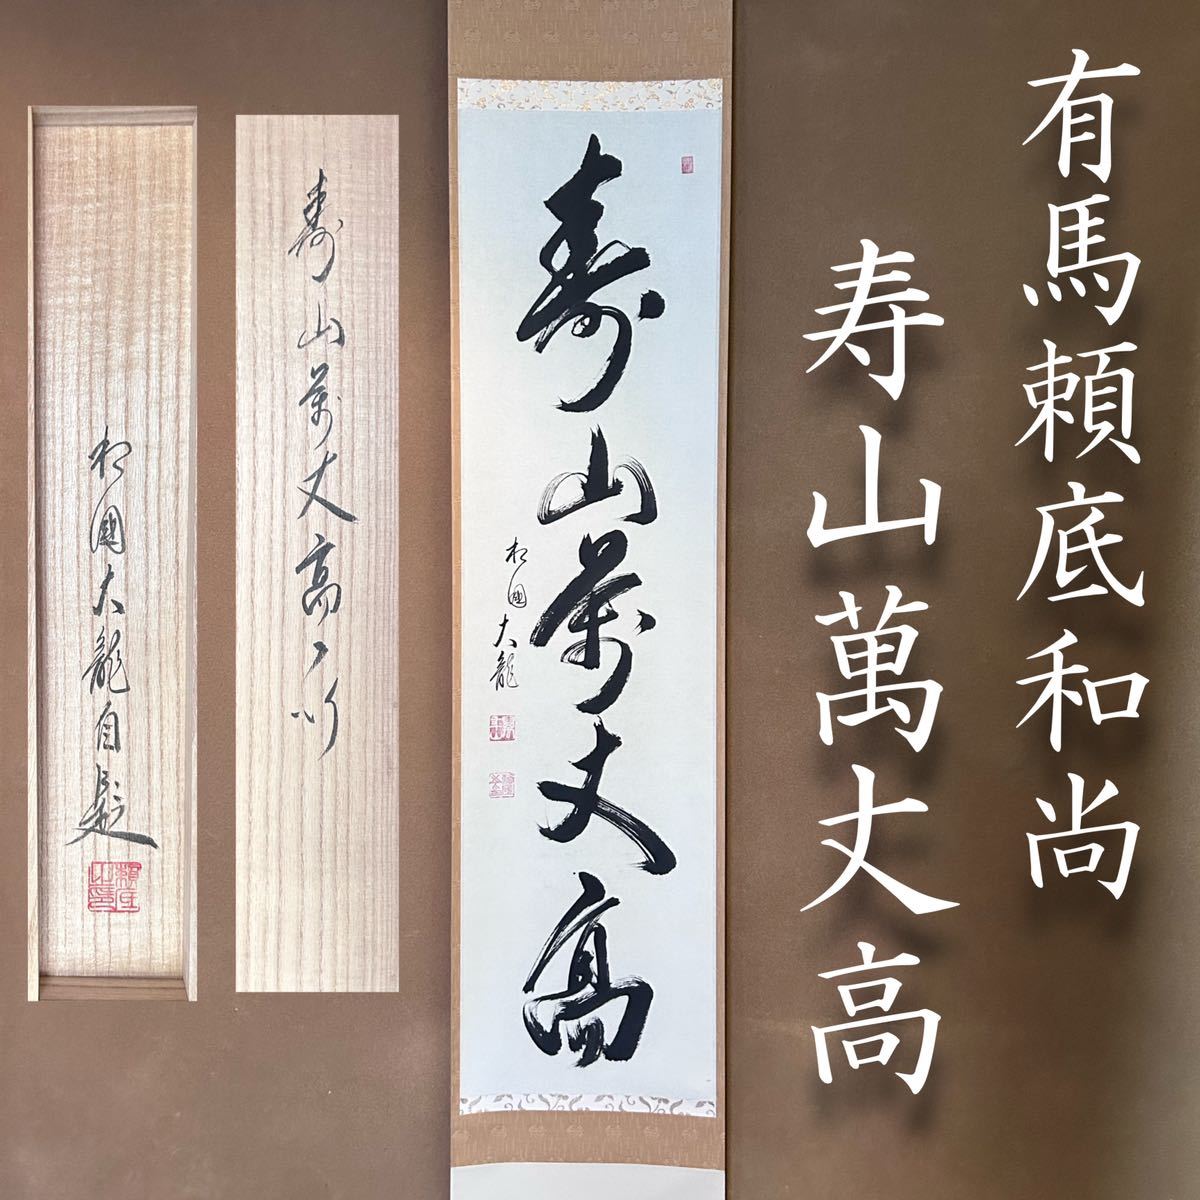 有馬頼底和尚
寿山萬丈高
寿山萬丈高
相國大龍
寿山萬丈高 一行
相國大龍自題
頼底